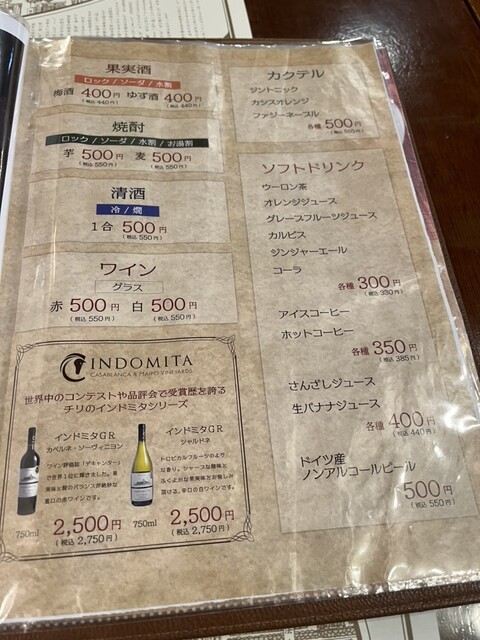 果実酒
ロック / ソーダ / 水割
梅酒 400円 ゆず酒 400円
(税込 440円) (税込 440円)
焼酎
ロック / ソーダ / 水割 / お湯割
芋 500円 麦 500円
(税込 550円) (税込 550円)
清酒
冷 / 燗
1合 500円
(税込 550円)
ワイン
グラス
赤 500円 白 500円
(税込 550円) (税込 550円)
INDOMITA
CASABLANCA & MAIPO VINEYARDS
世界中のコンテストや品評会で受賞歴を誇る
チリのインドミタシリーズ
インドミタGR
カベルネ・ソーヴィニヨン
750ml
2,500円
(税込 2,750円)
インドミタGR
シャルドネ
トロピカルフルーツのよう
な香り。シャープな酸味と
750ml
2,500円
(税込 2,750円)
カクテル
ジントニック
カシスオレンジ
ファジーネーブル
各種 500円
(税込 550円)
ソフトドリンク
ウーロン茶
オレンジジュース
グレープフルーツジュース
カルピス
ジンジャーエール
コーラ
各種 300円
(税込 330円)
アイスコーヒー
ホットコーヒー
各種 350円
(税込 385円)
さんざしジュース
生バナナジュース
各種 400円
(税込 440円)
ドイツ産
ノンアルコールビール
500円
(税込 550円)